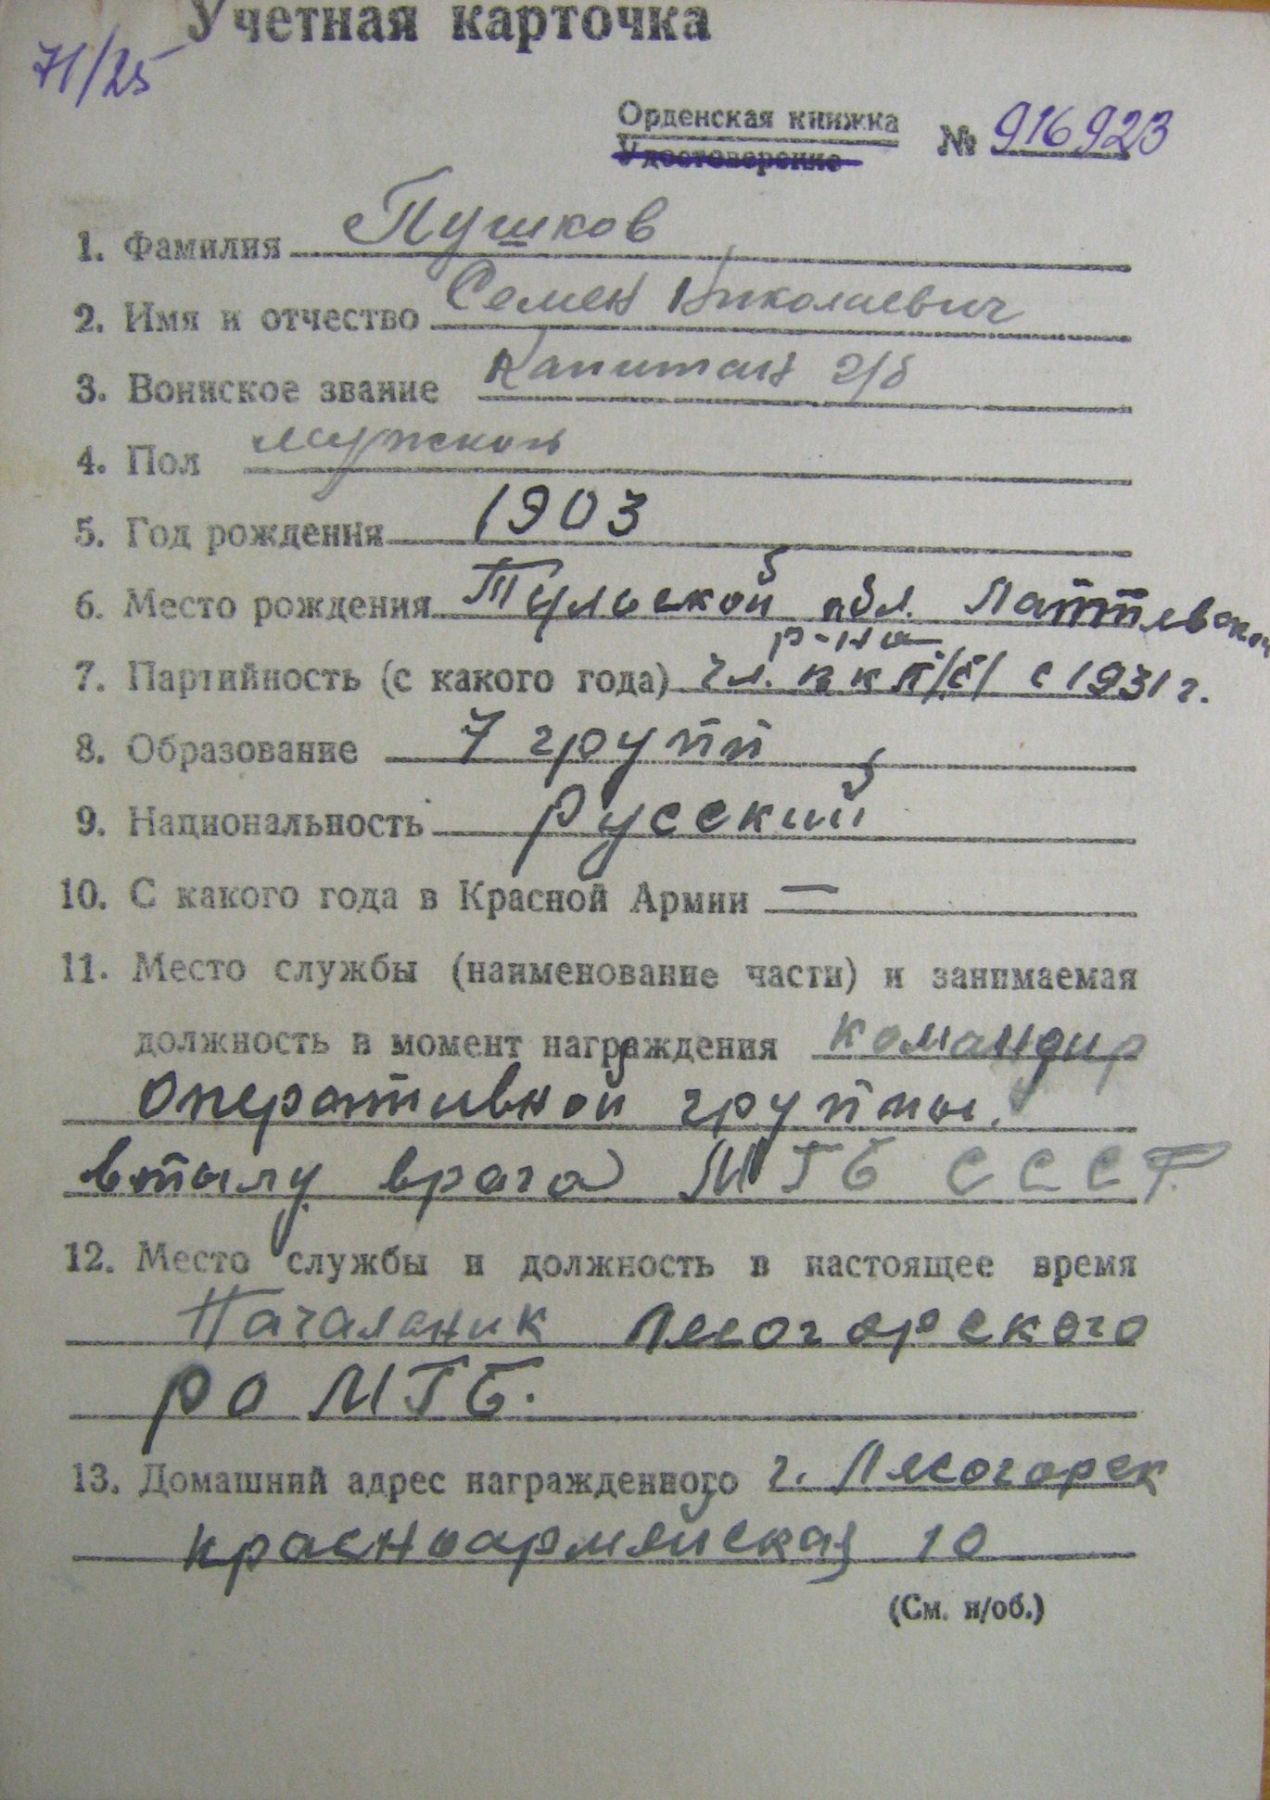 Учетная карточка
71/25
Орденская книжка
Удостоверение
№ 916923
1. Фамилия Пушков
2. Имя и отчество Семен Николаевич
3. Воинское звание Капитан г/б
4. Пол мужской
5. Год рождения 1903
6. Место рождения Тульской обл. Лаптевской
р-на
7. Партийность (с какого года) чл. ВКП/б/ с 1931 г.
8. Образование 7 групп
9. Национальность Русский
10. С какого года в Красной Армии —
11. Место службы (наименование части) и занимаемая
должность в момент награждения командир
оперативной группы,
в тылу врага МГБ СССР.
12. Место службы и должность в настоящее время
Начальник Лесогорского
РО МГБ.
13. Домашний адрес награжденного г. Лесогорск
красноармейская 10
(См. н/об.)